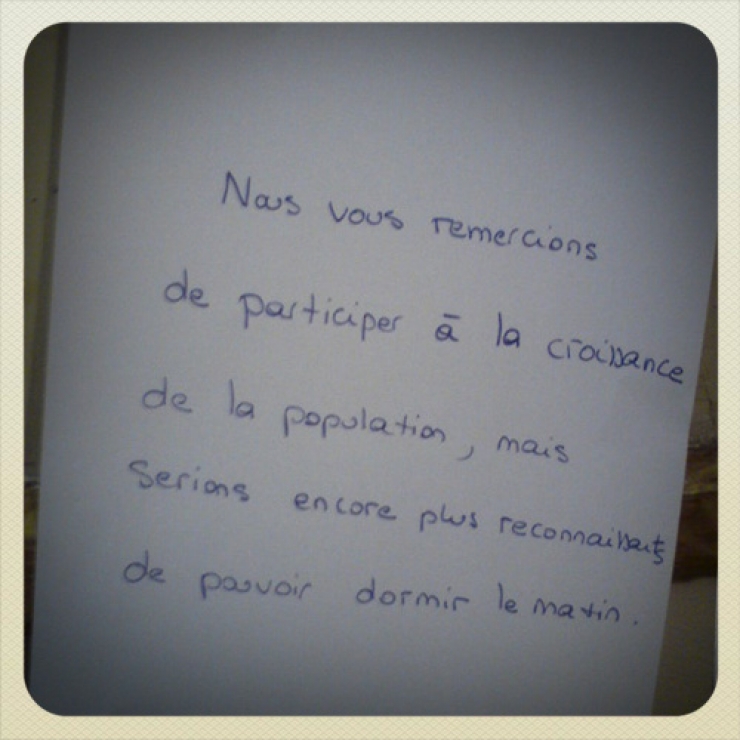 Nous vous remercions
de participer à la croissance
de la population, mais
serions encore plus reconnaissants
de pouvoir dormir le matin.